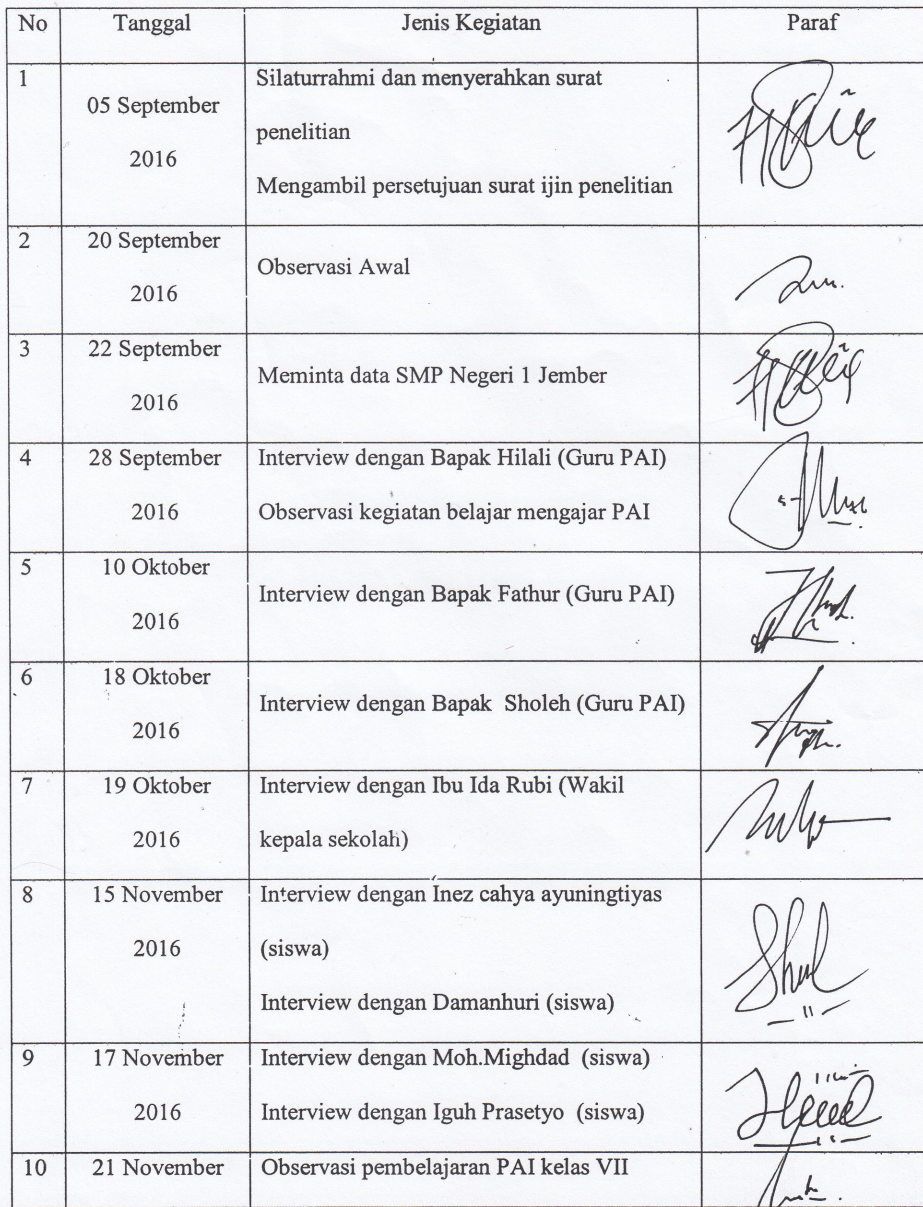 No Tanggal Jenis Kegiatan Paraf
1 05 September 2016 Silaturrahmi dan menyerahkan surat
penelitian
Mengambil persetujuan surat ijin penelitian
2 20 September 2016 Observasi Awal
3 22 September 2016 Meminta data SMP Negeri 1 Jember
4 28 September 2016 Interview dengan Bapak Hilali (Guru PAI)
Observasi kegiatan belajar mengajar PAI
5 10 Oktober 2016 Interview dengan Bapak Fathur (Guru PAI)
6 18 Oktober 2016 Interview dengan Bapak Sholeh (Guru PAI)
7 19 Oktober 2016 Interview dengan Ibu Ida Rubi (Wakil
kepala sekolah)
8 15 November 2016 Interview dengan Inez cahya ayuningtiyas
(siswa)
Interview dengan Damanhuri (siswa)
9 17 November 2016 Interview dengan Moh.Mighdad (siswa)
Interview dengan Iguh Prasetyo (siswa)
10 21 November Observasi pembelajaran PAI kelas VII